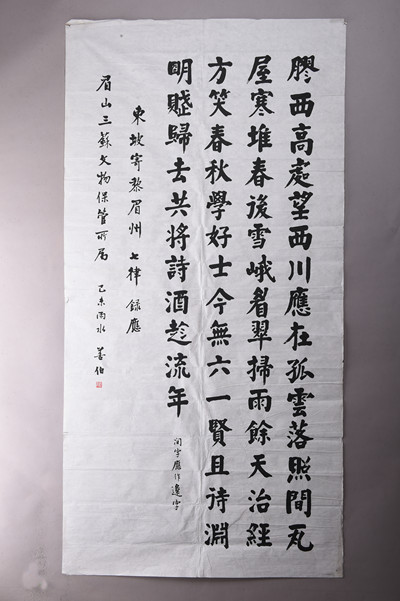 膠西高處望西川應在孤雲落照間瓦
屋寒堆春後雪峨眉翠掃雨餘天治經
方笑春秋學好士今無六一賢且待淵
明賦歸去共將詩酒趂流年
间字應作邊字
東坡寄黎眉州七律 錄應
眉山三蘇文物保管所属 己未雨水 善伯